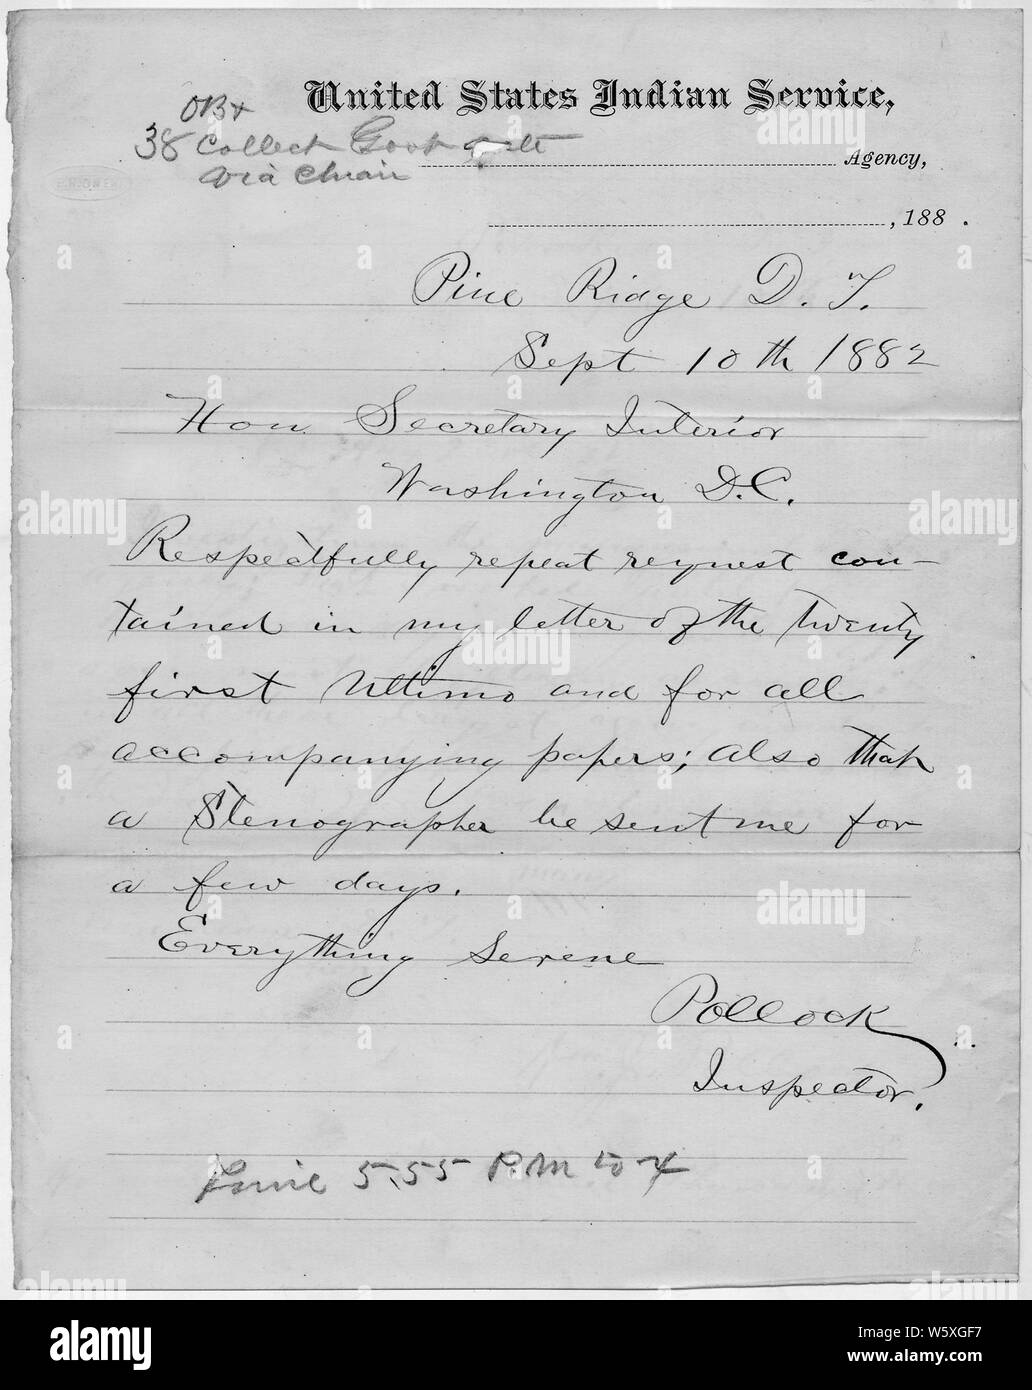 United States Indian Service,
OBX
38 Collect Govt
via Chair
Agency,
, 188 .
Pine Ridge D. T.
Sept 10th 1882
Hon. Secretary Interior
Washington D.C.
Respectfully repeat request con-
tained in my letter of the twenty
first Ultimo and for all
accompanying papers; also that
a Stenographer be sent me for
a few days.
Everything Serene
Pollock
Inspector.
5.55 P.M to
alamy
Image ID: W5XGF7
www.alamy.com